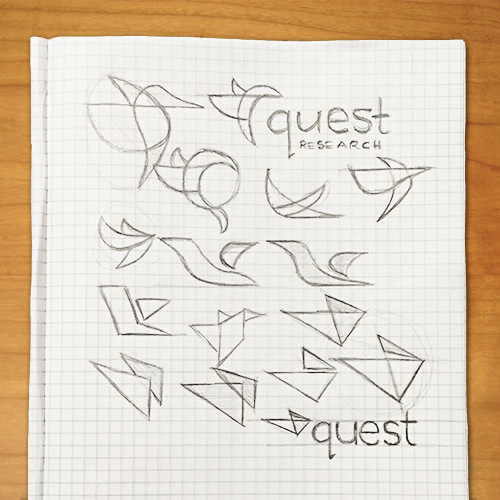 quest
RESEARCH
quest